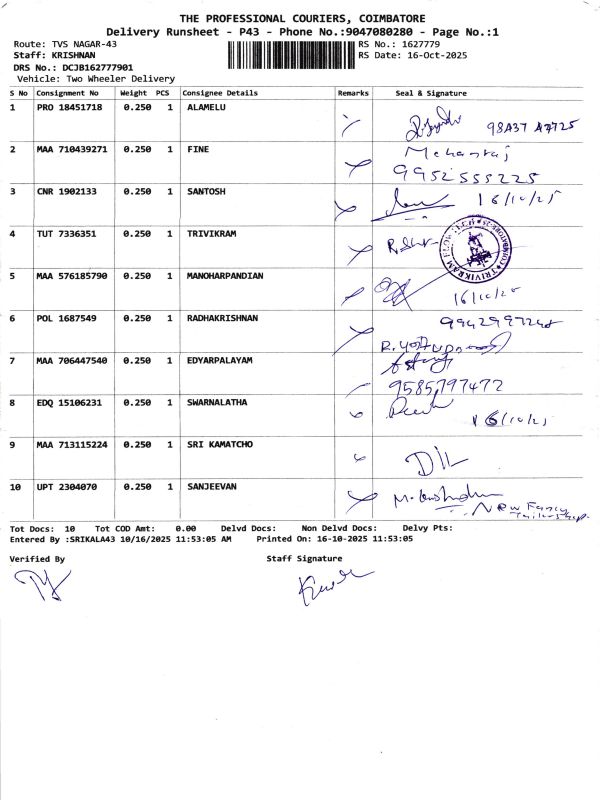 THE PROFESSIONAL COURIERS, COIMBATORE
Delivery Runsheet - P43 - Phone No.:9047080280 - Page No.:1
Route: TVS NAGAR-43 RS No.: 1627779
Staff: KRISHNAN RS Date: 16-Oct-2025
DRS No.: DCJB162777901
Vehicle: Two Wheeler Delivery
S No Consignment No Weight PCS Consignee Details Remarks Seal & Signature
1 PRO 18451718 0.250 1 ALAMELU
2 MAA 710439271 0.250 1 FINE
9952555225
3 CNR 1902133 0.250 1 SANTOSH 16/10/25
4 TUT 7336351 0.250 1 TRIVIKRAM
5 MAA 576185790 0.250 1 MANOHARPANDIAN
16/10/25
6 POL 1687549 0.250 1 RADHAKRISHNAN
7 MAA 706447540 0.250 1 EDYARPALAYAM
9585797472
8 EDQ 15106231 0.250 1 SWARNALATHA
16/10/25
9 MAA 713115224 0.250 1 SRI KAMATCHO
10 UPT 2304070 0.250 1 SANJEEVAN
New Fancy
Tot Docs: 10 Tot COD Amt: 0.00 Delvd Docs: Non Delvd Docs: Delvy Pts:
Entered By :SRIKALA43 10/16/2025 11:53:05 AM Printed On: 16-10-2025 11:53:05
Verified By Staff Signature